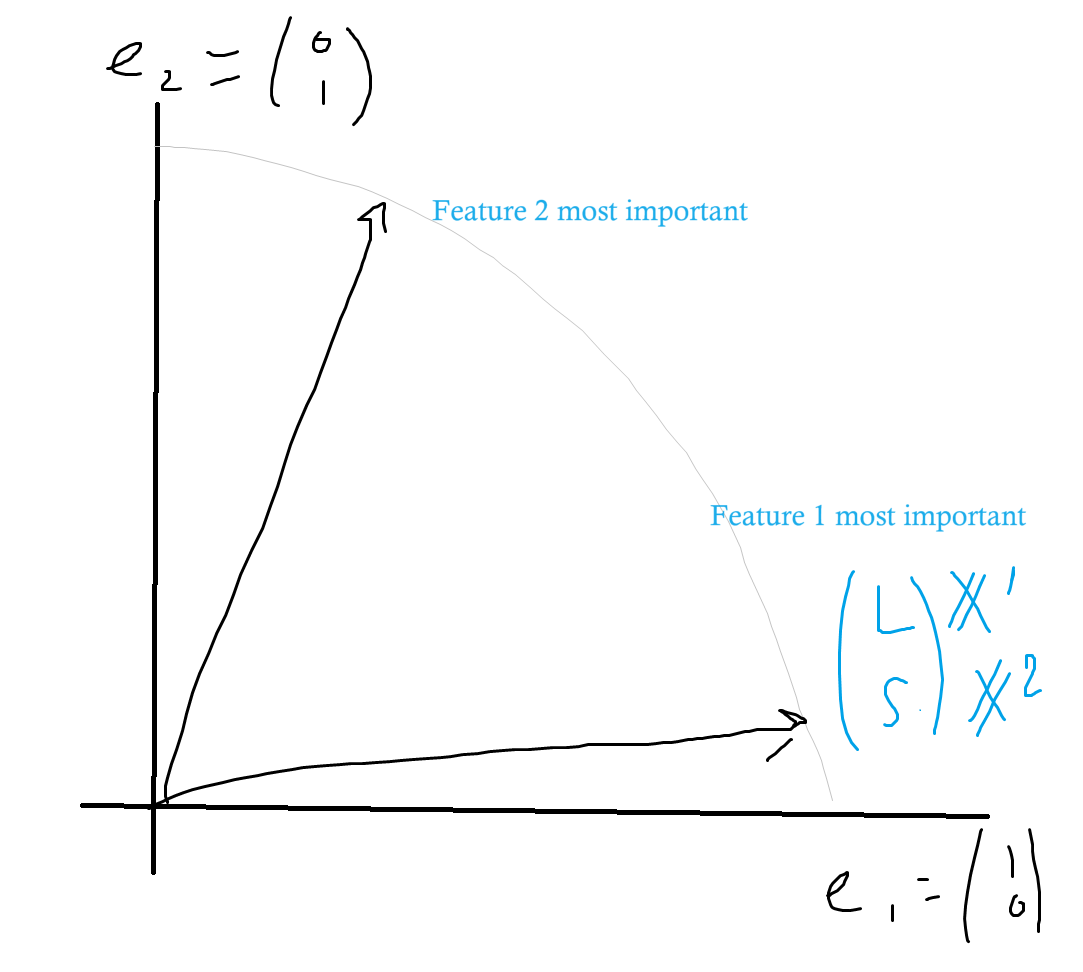 e₂ = (0
1)
Feature 2 most important
Feature 1 most important
(L) X¹
(S) X²
e₁ = (1
0)